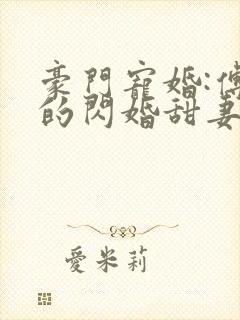 豪門寵婚:傅
的閃婚甜妻
愛米莉